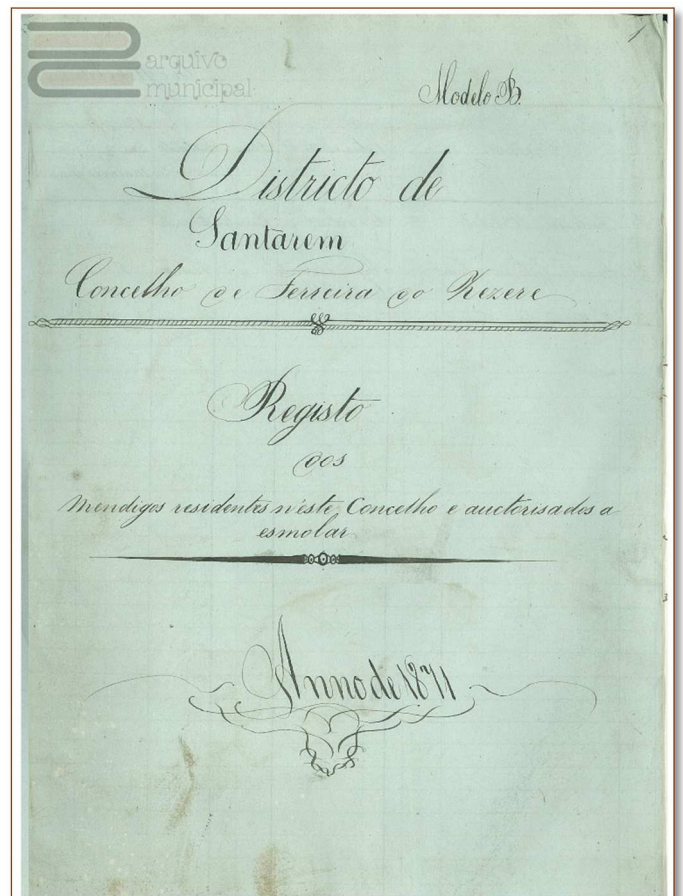 arquivo
municipal
1
Modelo B.
Districto de
Santarem
Concelho de Ferreira do Zezere
Registo
dos
Mendigos residentes n'este Concelho e auctorisados a
esmolar
Anno de 1871